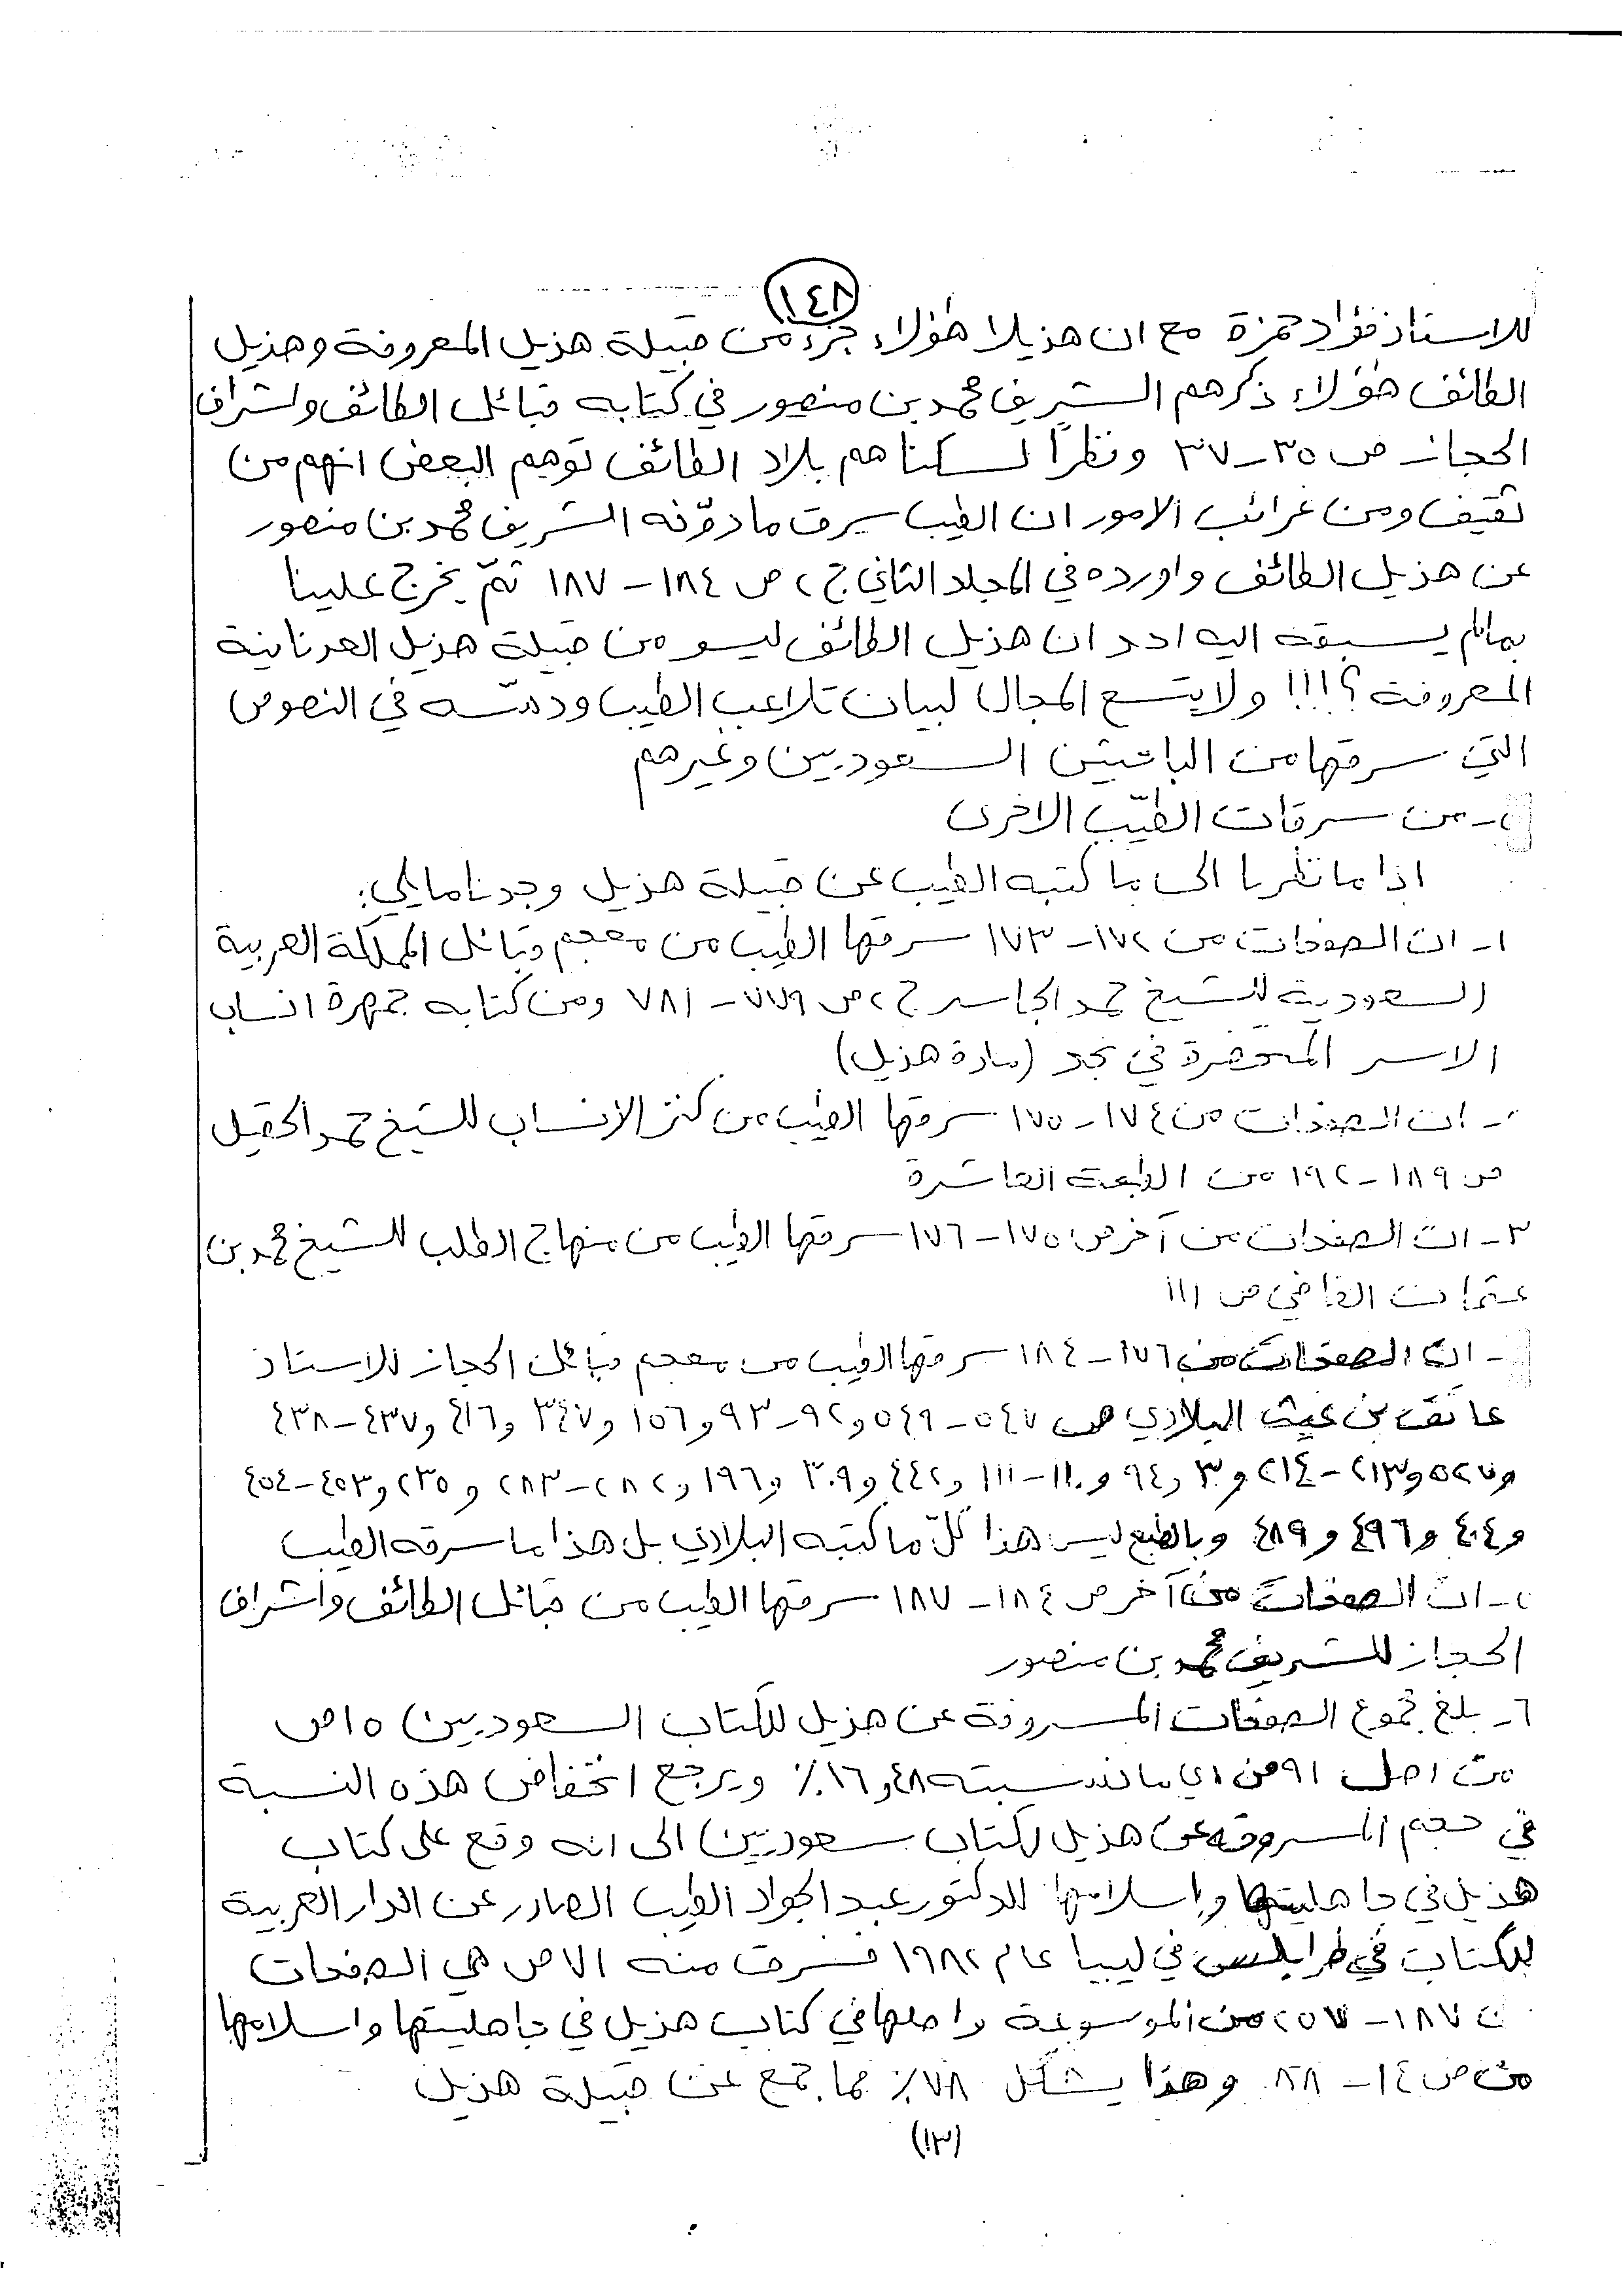 ١٤٨
للاستاذ فؤاد حمزة مع ان هذيلا هؤلاء جزء من قبيلة هذيل المعروفة وهذيل
الطائف هؤلاء ذكرهم الشريف محمد بن منصور في كتابه قبائل الطائف واشراف
الحجاز ص ٣٥-٣٧ ونظراً لسكناهم بلاد الطائف توهم البعض انهم من
ثقيف ومن غرائب الامور ان الطيب سرق ما دوّنه الشريف محمد بن منصور
عن هذيل الطائف واورده في المجلد الثاني ج٢ ص ١٨٤-١٨٧ ثمّ يخرج علينا
بمالم يسبقه اليه احد ان هذيل الطائف ليسو من قبيلة هذيل العدنانية
المعروفة ؟!!! ولا يتسع المجال لبيان تلاعب الطيب ودسّه في النصوص
التي سرقها من الباحثين السعوديين وغيرهم
من سرقات الطيّب الاخرى
اذا ما نظرنا الى ما كتبه الطيب عن قبيلة هذيل وجدنا مايلي:
١- ان الصفحات من ١٧٢-١٧٣ سرقها الطيب من معجم قبائل المملكة العربية
السعودية للشيخ حمد الجاسر ج٢ ص ٧٧٩-٧٨١ ومن كتابه جمهرة انساب
الاسر المتحضرة في نجد (مادة هذيل)
- ان الصفحات من ١٧٤-١٧٥ سرقها الطيب من كنز الانساب للشيخ حمد الحقيل
ص ١٨٩-١٩٢ من الطبعة العاشرة
٣- ان الصفحات من آخر ص ١٧٥-١٧٦ سرقها الطيب من منهاج الطلب للشيخ محمد بن
عثمان القاضي ص ١١١
- ان الصفحات من ١٧٦-١٨٤ سرقها الطيب من معجم قبائل الحجاز للاستاذ
عاتق بن غيث البلادي ص ٥٤٧-٥٤٩ و٩٢-٩٣ و١٥٦ و٣٤٧ و٤١٦ و٤٣٧-٤٣٨
و٥٢٧ و٢١٣-٢١٤ و٣٠ و٩٤ و١١٠-١١١ و٤٤٢ و٣٠٩ و١٩٦ و٢٨٢-٢٨٣ و٢٣٥ و٤٥٣-٤٥٤
و٤٠٤ و٤٩٦ و٤٨٩ وبالطبع ليس هذا كلّ ما كتبه البلادي بل هذا ما سرقه الطيب
- ان الصفحات من آخر ص ١٨٤-١٨٧ سرقها الطيب من قبائل الطائف واشراف
الحجاز للشريف محمد بن منصور
٦- بلغ مجموع الصفحات المسروقة عن هذيل للكتاب السعوديين ١٥ص
من اصل ٩١ص اي ما نسبته ١٦,٤٨٪ ويرجع انخفاض هذه النسبة
في حجم المسروقه عن هذيل لكتاب سعوديين الى انه وقع على كتاب
هذيل في جاهليتها واسلامها للدكتور عبد الجواد الطيب الصادر عن الدار العربية
للكتاب في طرابلس في ليبيا عام ١٩٨٢ فسرق منه ٧١ص هي الصفحات
١٨٧-٢٥٧ من الموسوعة واصلها في كتاب هذيل في جاهليتها واسلامها
من ص ١٤-٨٨ وهذا يشكل ٧٨٪ مما جمع عن قبيلة هذيل
(١٣)